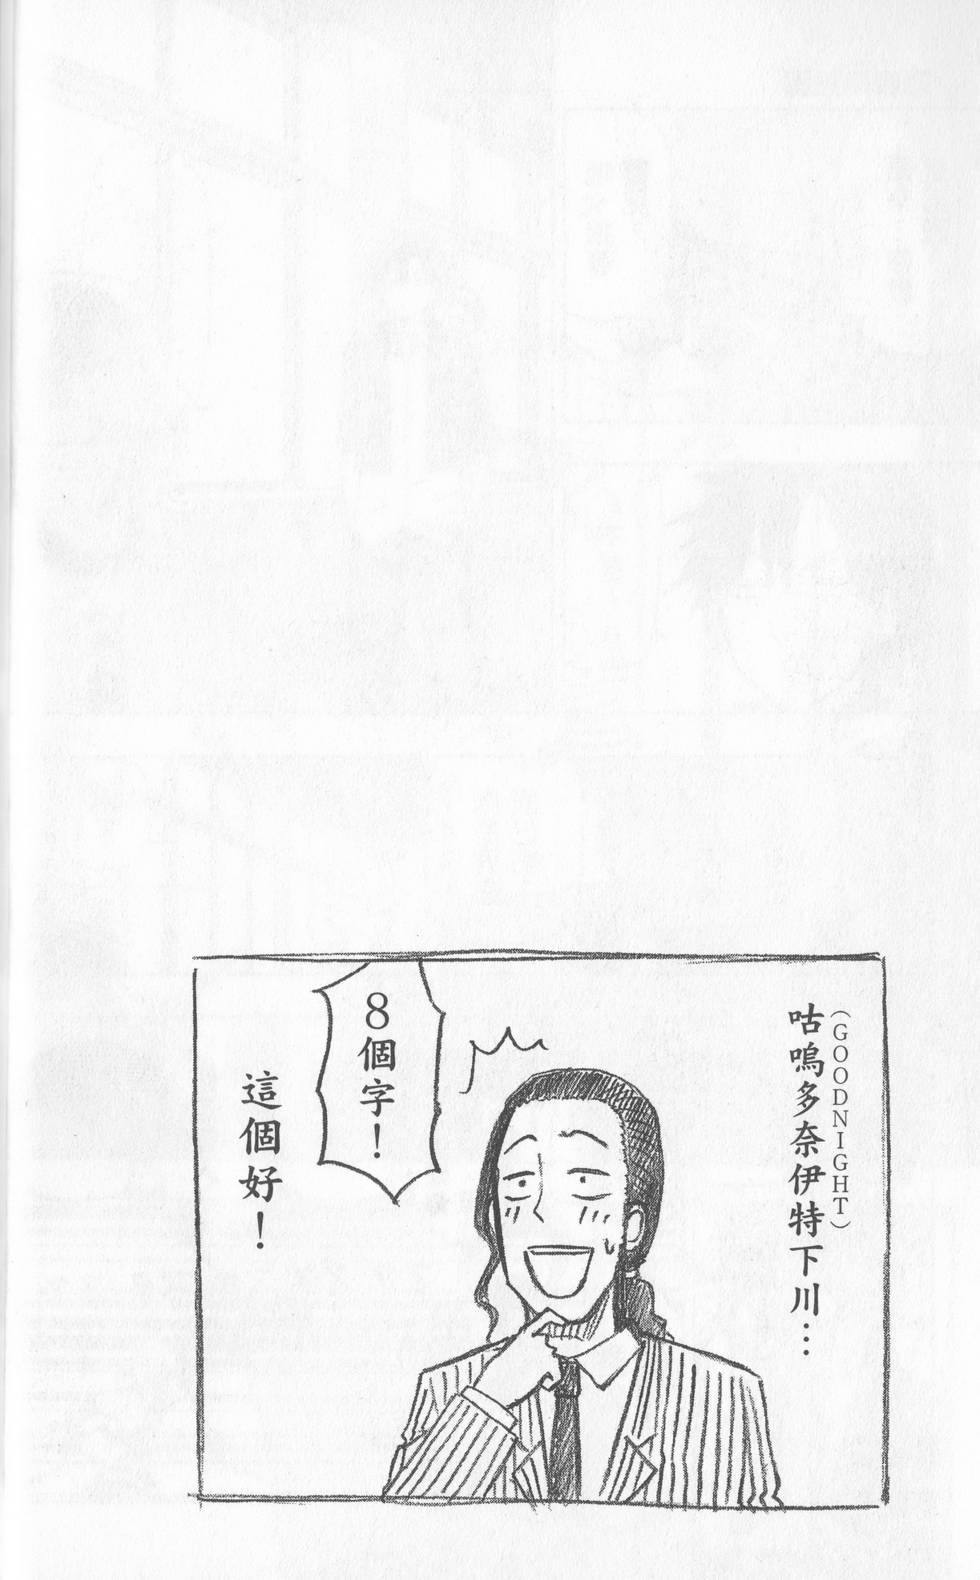 咕嗚多奈伊特下川…
(GOODNIGHT)
8個字！
這個好！